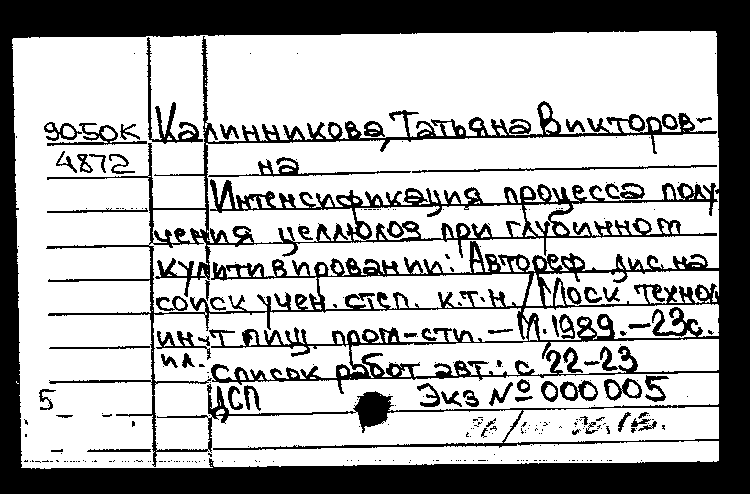 90-50К Калинникова, Татьяна Викторов-
4872 на
Интенсификация процесса полу-
чения целлюлоз при глубинном
культивировании: Автореф. дис. на
соиск учен. степ. к.т.н. / Моск. технол
ин-т пищ. пром-сти. — М. 1989. — 23с.
ил. Список работ авт.: с 22-23
5 ЦСП Экз № 000005